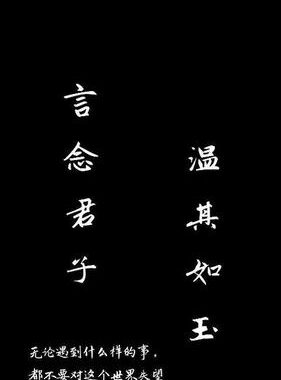 言念君子
温其如玉
无论遇到什么样的事，
都不要对这个世界失望